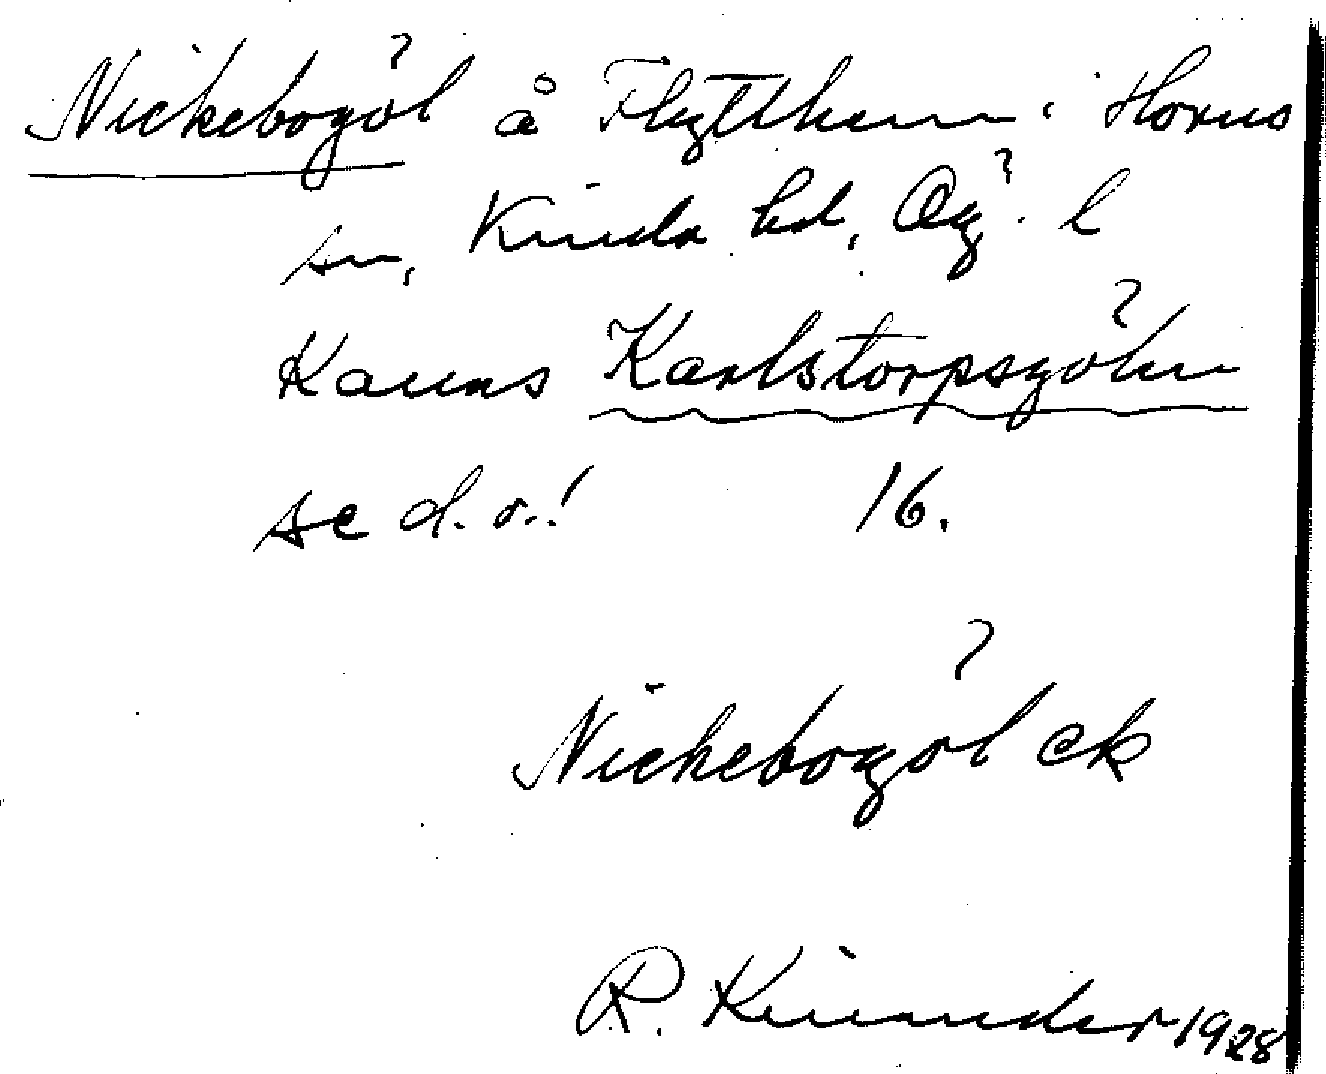 Nickebogöl å Flytthem i Horns
sn, Kinda hd, Ög. l
Kanns Karlstorpsgöln
se d. o.! 16.
Nickebogöl ck
R. Kinander 1928